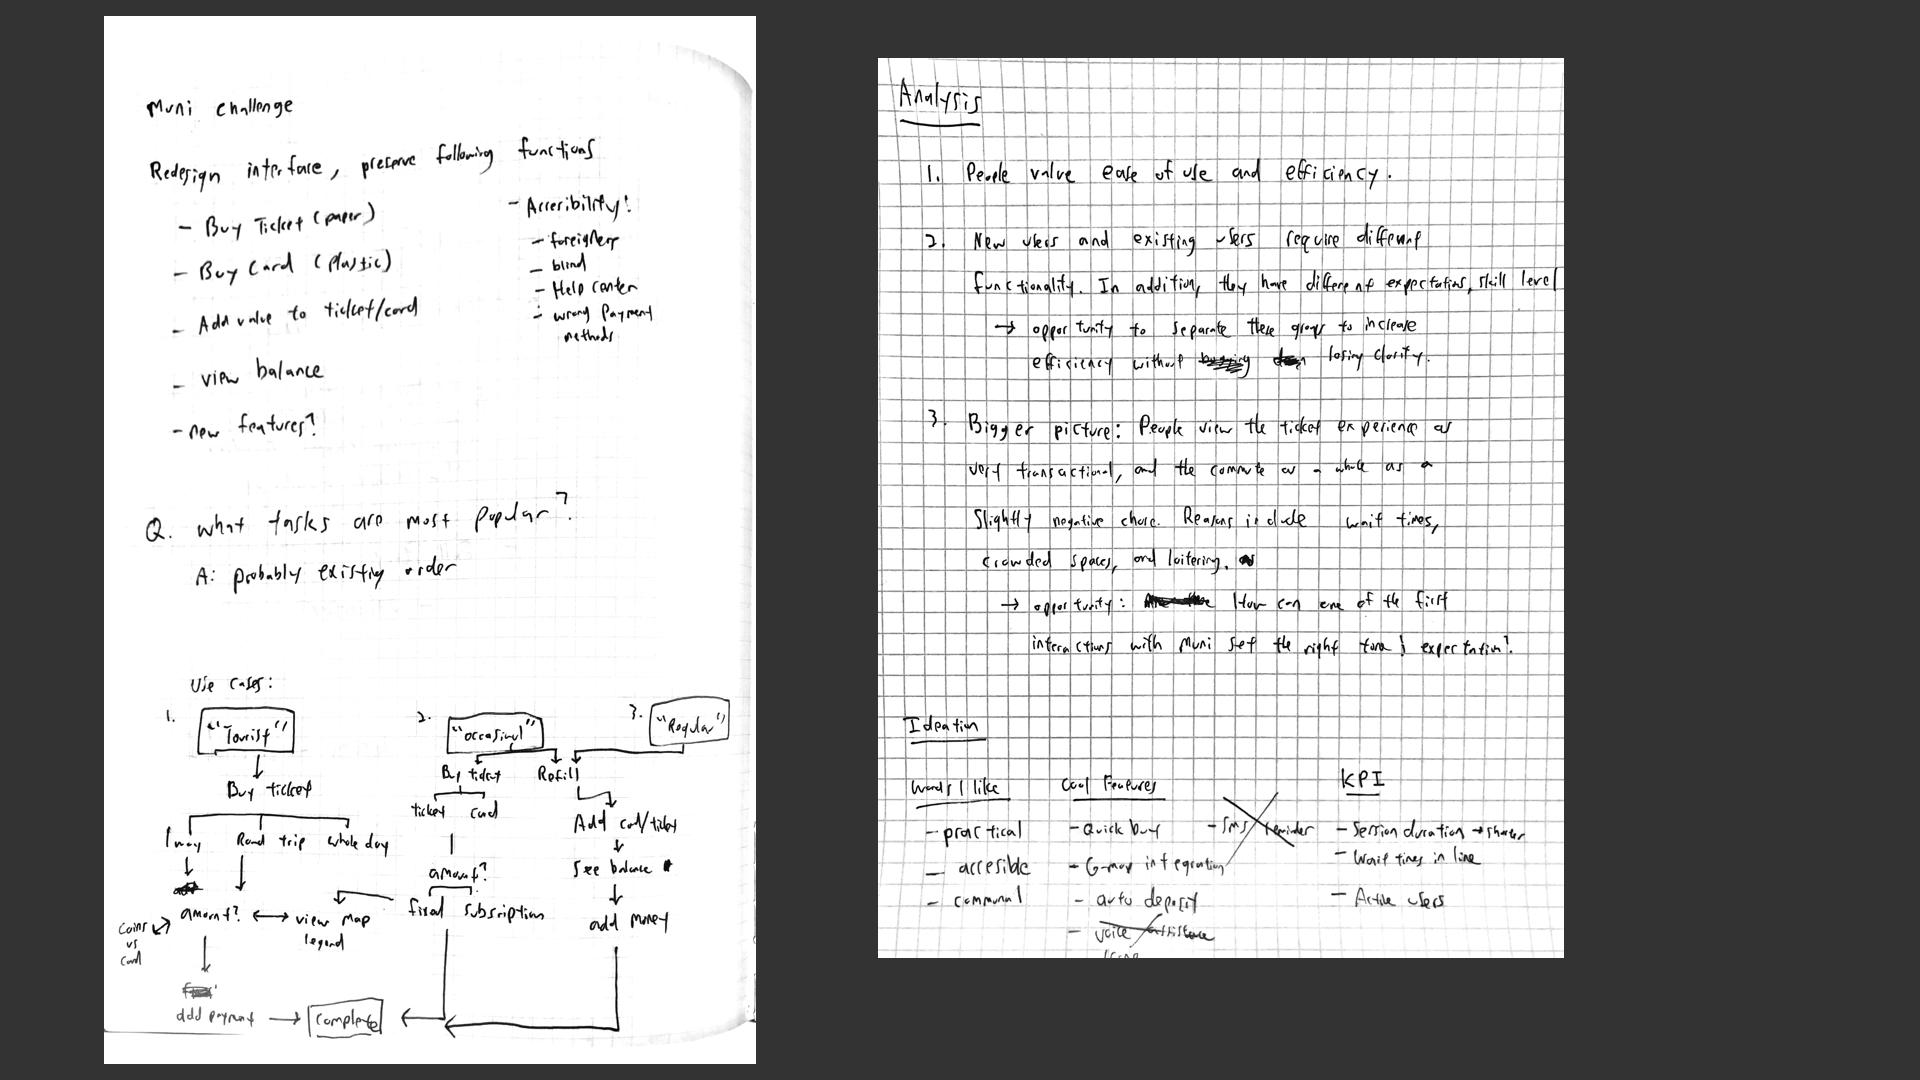 Muni challenge
Redesign interface, preserve following functions
- Buy Ticket (paper)
- Buy Card (plastic)
- Add value to ticket/card
- view balance
- new features?
- Accesibility!
- foreigners
- blind
- Help center
- wrong payment
methods
Q. what tasks are most popular?
A: probably existing order
Use cases:
1. "Tourist"
2. "occasional"
3. "Regular"
Buy ticket
1 way Round trip whole day
amount? view map
legend
coins
vs
card
add payment
complete
Buy ticket Refill
ticket card
amount?
fixed subscription
Add card/ticket
See balance
add money
Analysis
1. People value ease of use and efficiency.
2. New users and existing users require different
functionality. In addition, they have different expectations, skill level
→ opportunity to separate these groups to increase
efficiency without losing clarity.
3. Bigger picture: People view the ticket experience as
very transactional, and the commute as a whole as a
slightly negative chore. Reasons include wait times,
crowded spaces, and loitering.
→ opportunity: How can one of the first
interactions with Muni set the right tone & expectation?
Ideation
Words I like
- practical
- accesible
- communal
Cool Features
- Quick buy
- G-map integration
- auto deposit
- voice assistance
- SMS reminder
KPI
- Session duration → shorter
- Wait times in line
- Active users